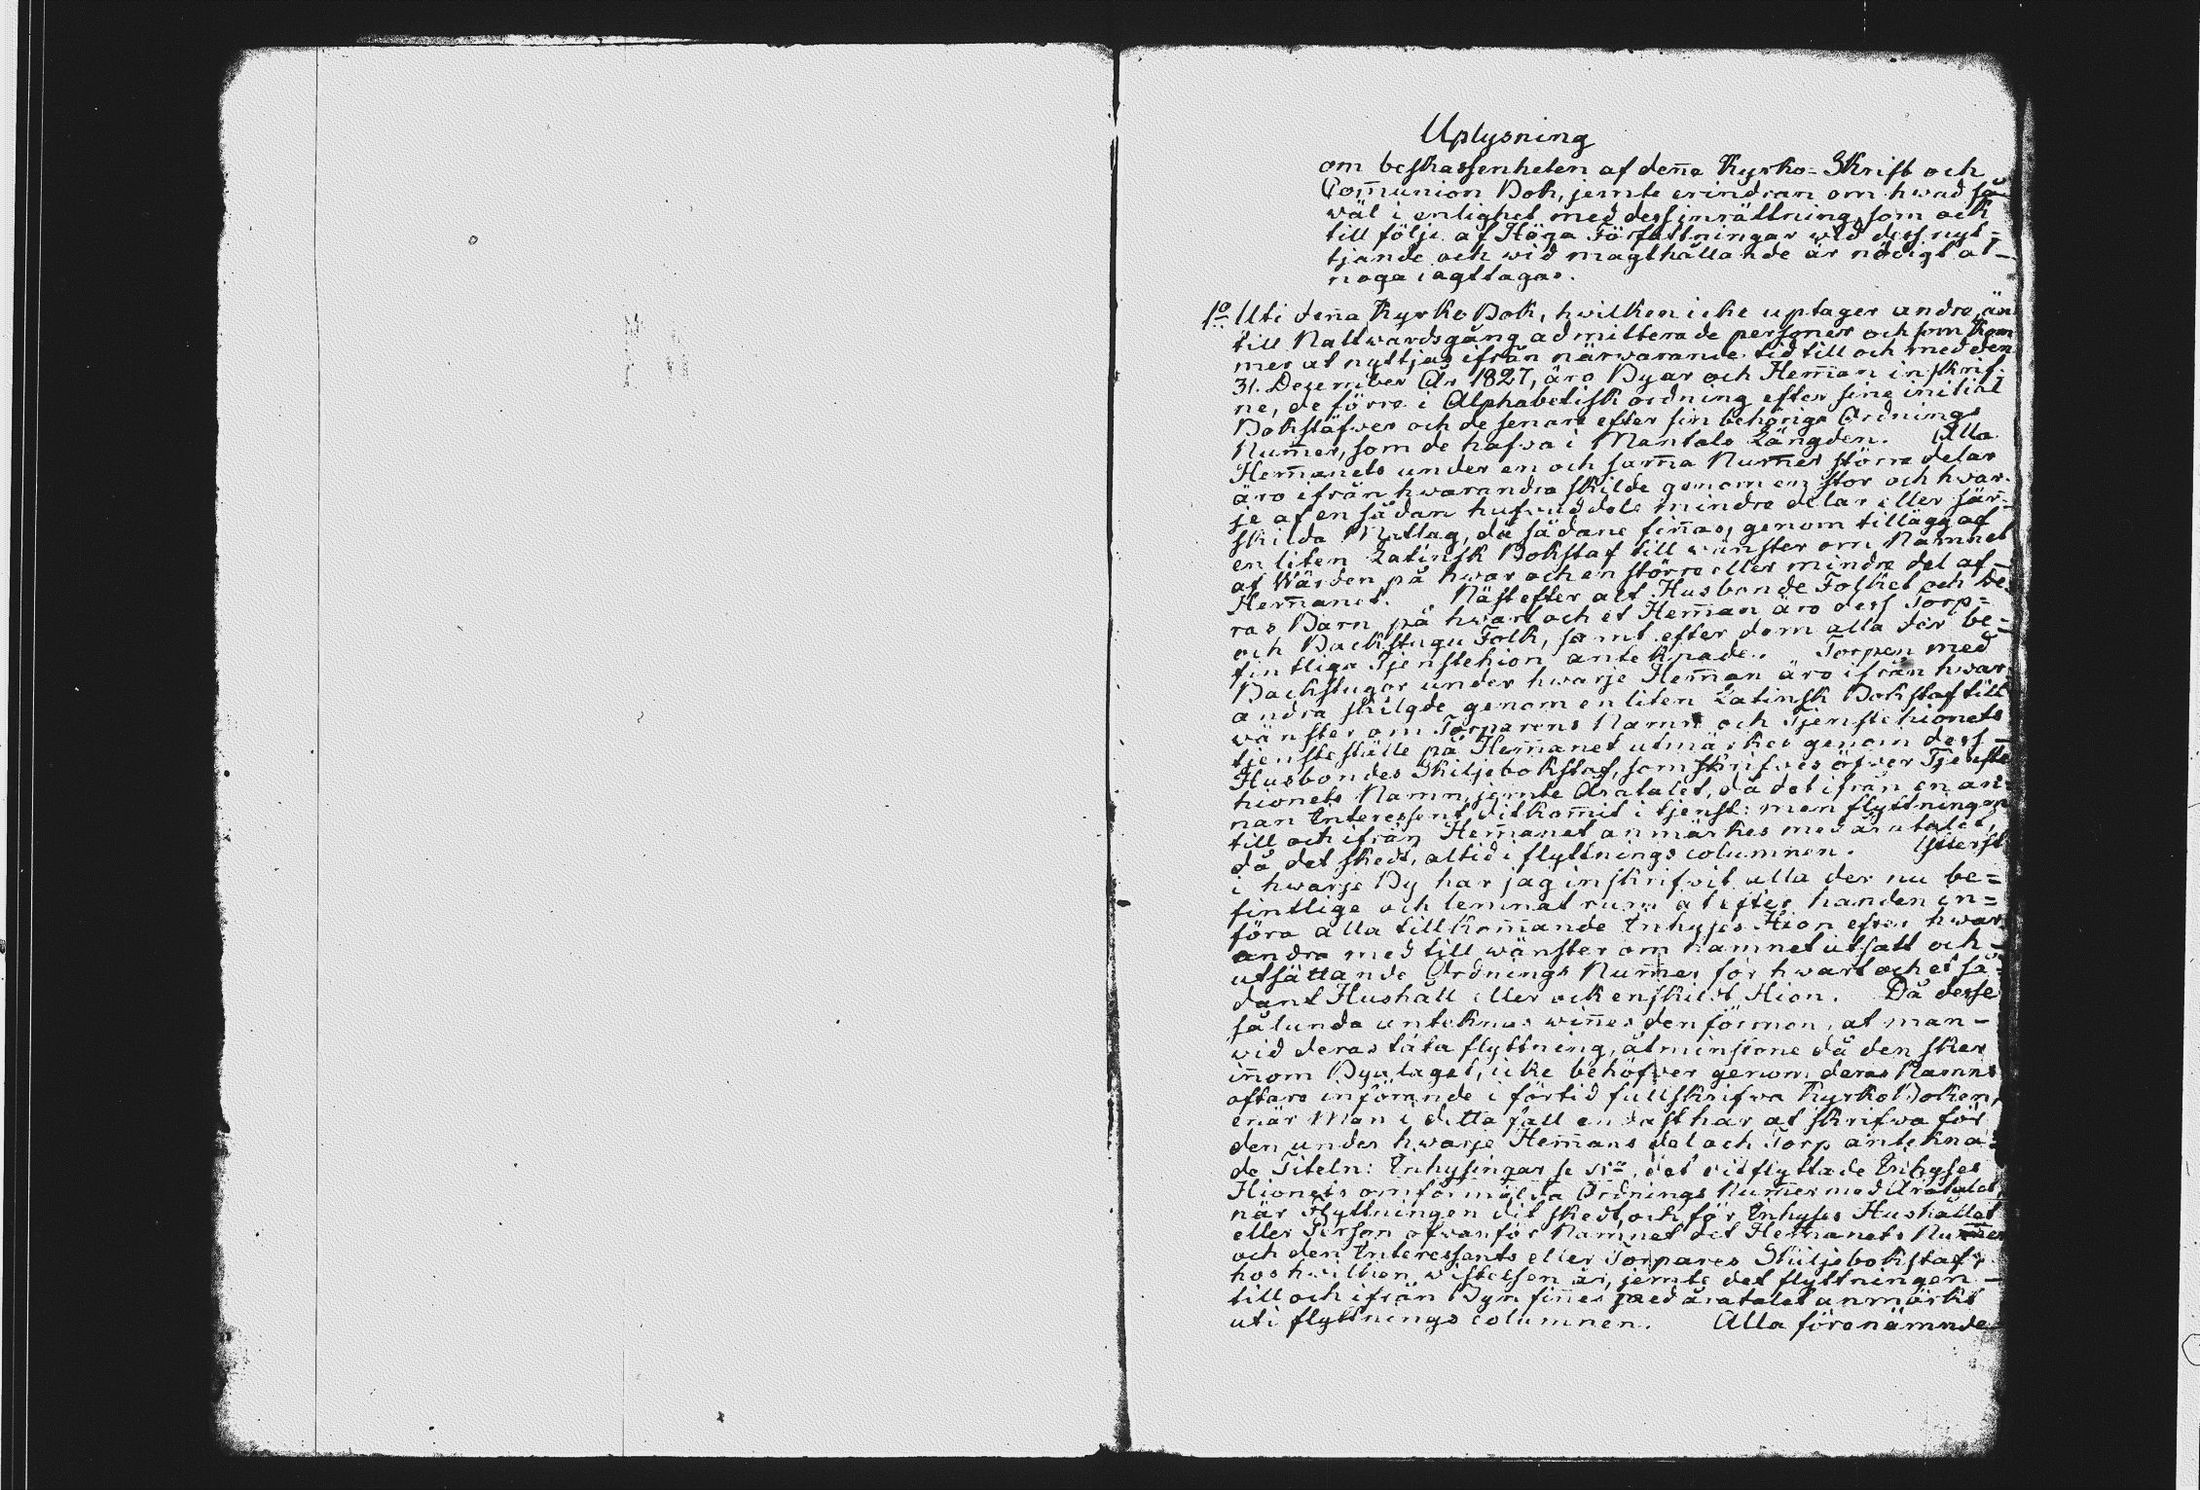 Uplysning
om beskaffenheten af deña Kyrko= Skrift och
Com̄union Bok, jemte erindran om hwad så
wäl i enlighet med dess inrättning, som ock
till följe af Höga Författningar wid dess nyt=
tjande och wid magthållande är nödigt at
noga iagttagas.
1o Uti deña Kyrko Bok, hvilken icke uptager andra, än
till Nattwardsgång admitterade personer och som kom
mer at nyttjas ifrån närwarande tid till och med den
31. Dezember År 1827, äro Byar och Hem̄an inskrif-
ne, de förre i Alphabetisk ordning efter sine initial
Bokstäfver och de senare efter sin behöriga Ordnings
Num̄er, som de hafva i Mantals Längden. Alla
Hem̄anets under en och sam̄a Num̄er större delar
äro ifrån hwarandra skilde genom en stor och hwar-
je af en sådan hufvuddels mindre delar eller sär-
skilda Matlag, då sådane fiñas, genom tillägg af
en liten Latinsk Bokstaf till wänster om Namnet
af Wärden på hwar och en större eller mindre del af
Hem̄anet. Näst efter alt Husbonde Folket och de
ras Barn på hwart och et Hem̄an äro dess Torp=
och Backstugu Folk, samt efter dem alla der be=
fintliga Tjenstehion anteknade. Torpen med
Backstugor under hwarje Hem̄an äro ifrån hwar
andra skilgde genom en liten Latinsk Bokstaf till
wänster om Torparens Namn och Tjenstehionets
tjensteställe på Hem̄anet utmärkes genom dess
Husbondes Skiljebokstaf, som skrifves öfver Tjenste
hionets Namn, jemte Åratalet, då det ifrån en an-
nan Interessent ditkom̄it i tjenst: men flyttningen
till och ifrån Hem̄anet anmärkes med åratalet,
då det skedt, altid i flyttnings columnen. Ytterst
i hwarje By har jag inskrifvit alla der nu be=
fintlige och lemnat rum at efter handen in=
föra alla tillkom̄ande Inhyses Hion efter hwar
andra med till wänster om namnet utsatt och
utsättande Ordnings Num̄er för hwart och et så=
dant Hushåll eller ock enskilt Hion. Då desse
sålunda anteknas wiñes den förmon, at man
wid deras täta flyttning, åtminstone då den sker
iñom Byalaget, icke behöfver genom deras Namns
oftare införande i förtid fullskrifva Kyrko Boken,
enär Man i detta fall endast har at skrifva för
den under hwarje Hem̄ans del och Torp antekna=
de Titeln: Inhysingar se No, det ditflyttade Inhyses
Hionets omförmälda Ordnings Num̄er med Åratalet,
när flyttningen dit skedt, och för Inhyses Hushållet
eller Person ofvanför Namnet det Hem̄anets Num̄er
och den Interessents eller Torpares Skiljebokstaf,
hos hwilken wistelsen är, jemte det flyttningen
till och ifrån Byn fiñes med åratalet anmärkt
uti flyttnings columnen. Alla förenämnde